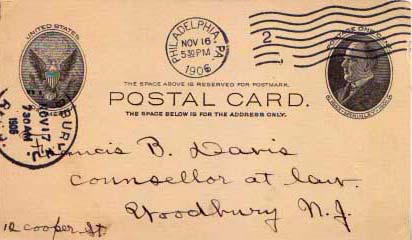 UNITED STATES
PHILADELPHIA, PA.
NOV 16
5 30 PM
1906
2
THE SPACE ABOVE IS RESERVED FOR POSTMARK.
POSTAL CARD.
THE SPACE BELOW IS FOR THE ADDRESS ONLY.
NOV 17
7 30 AM
1906
Francis B. Davis
Counsellor at law.
Woodbury N. J.
12 Cooper St.